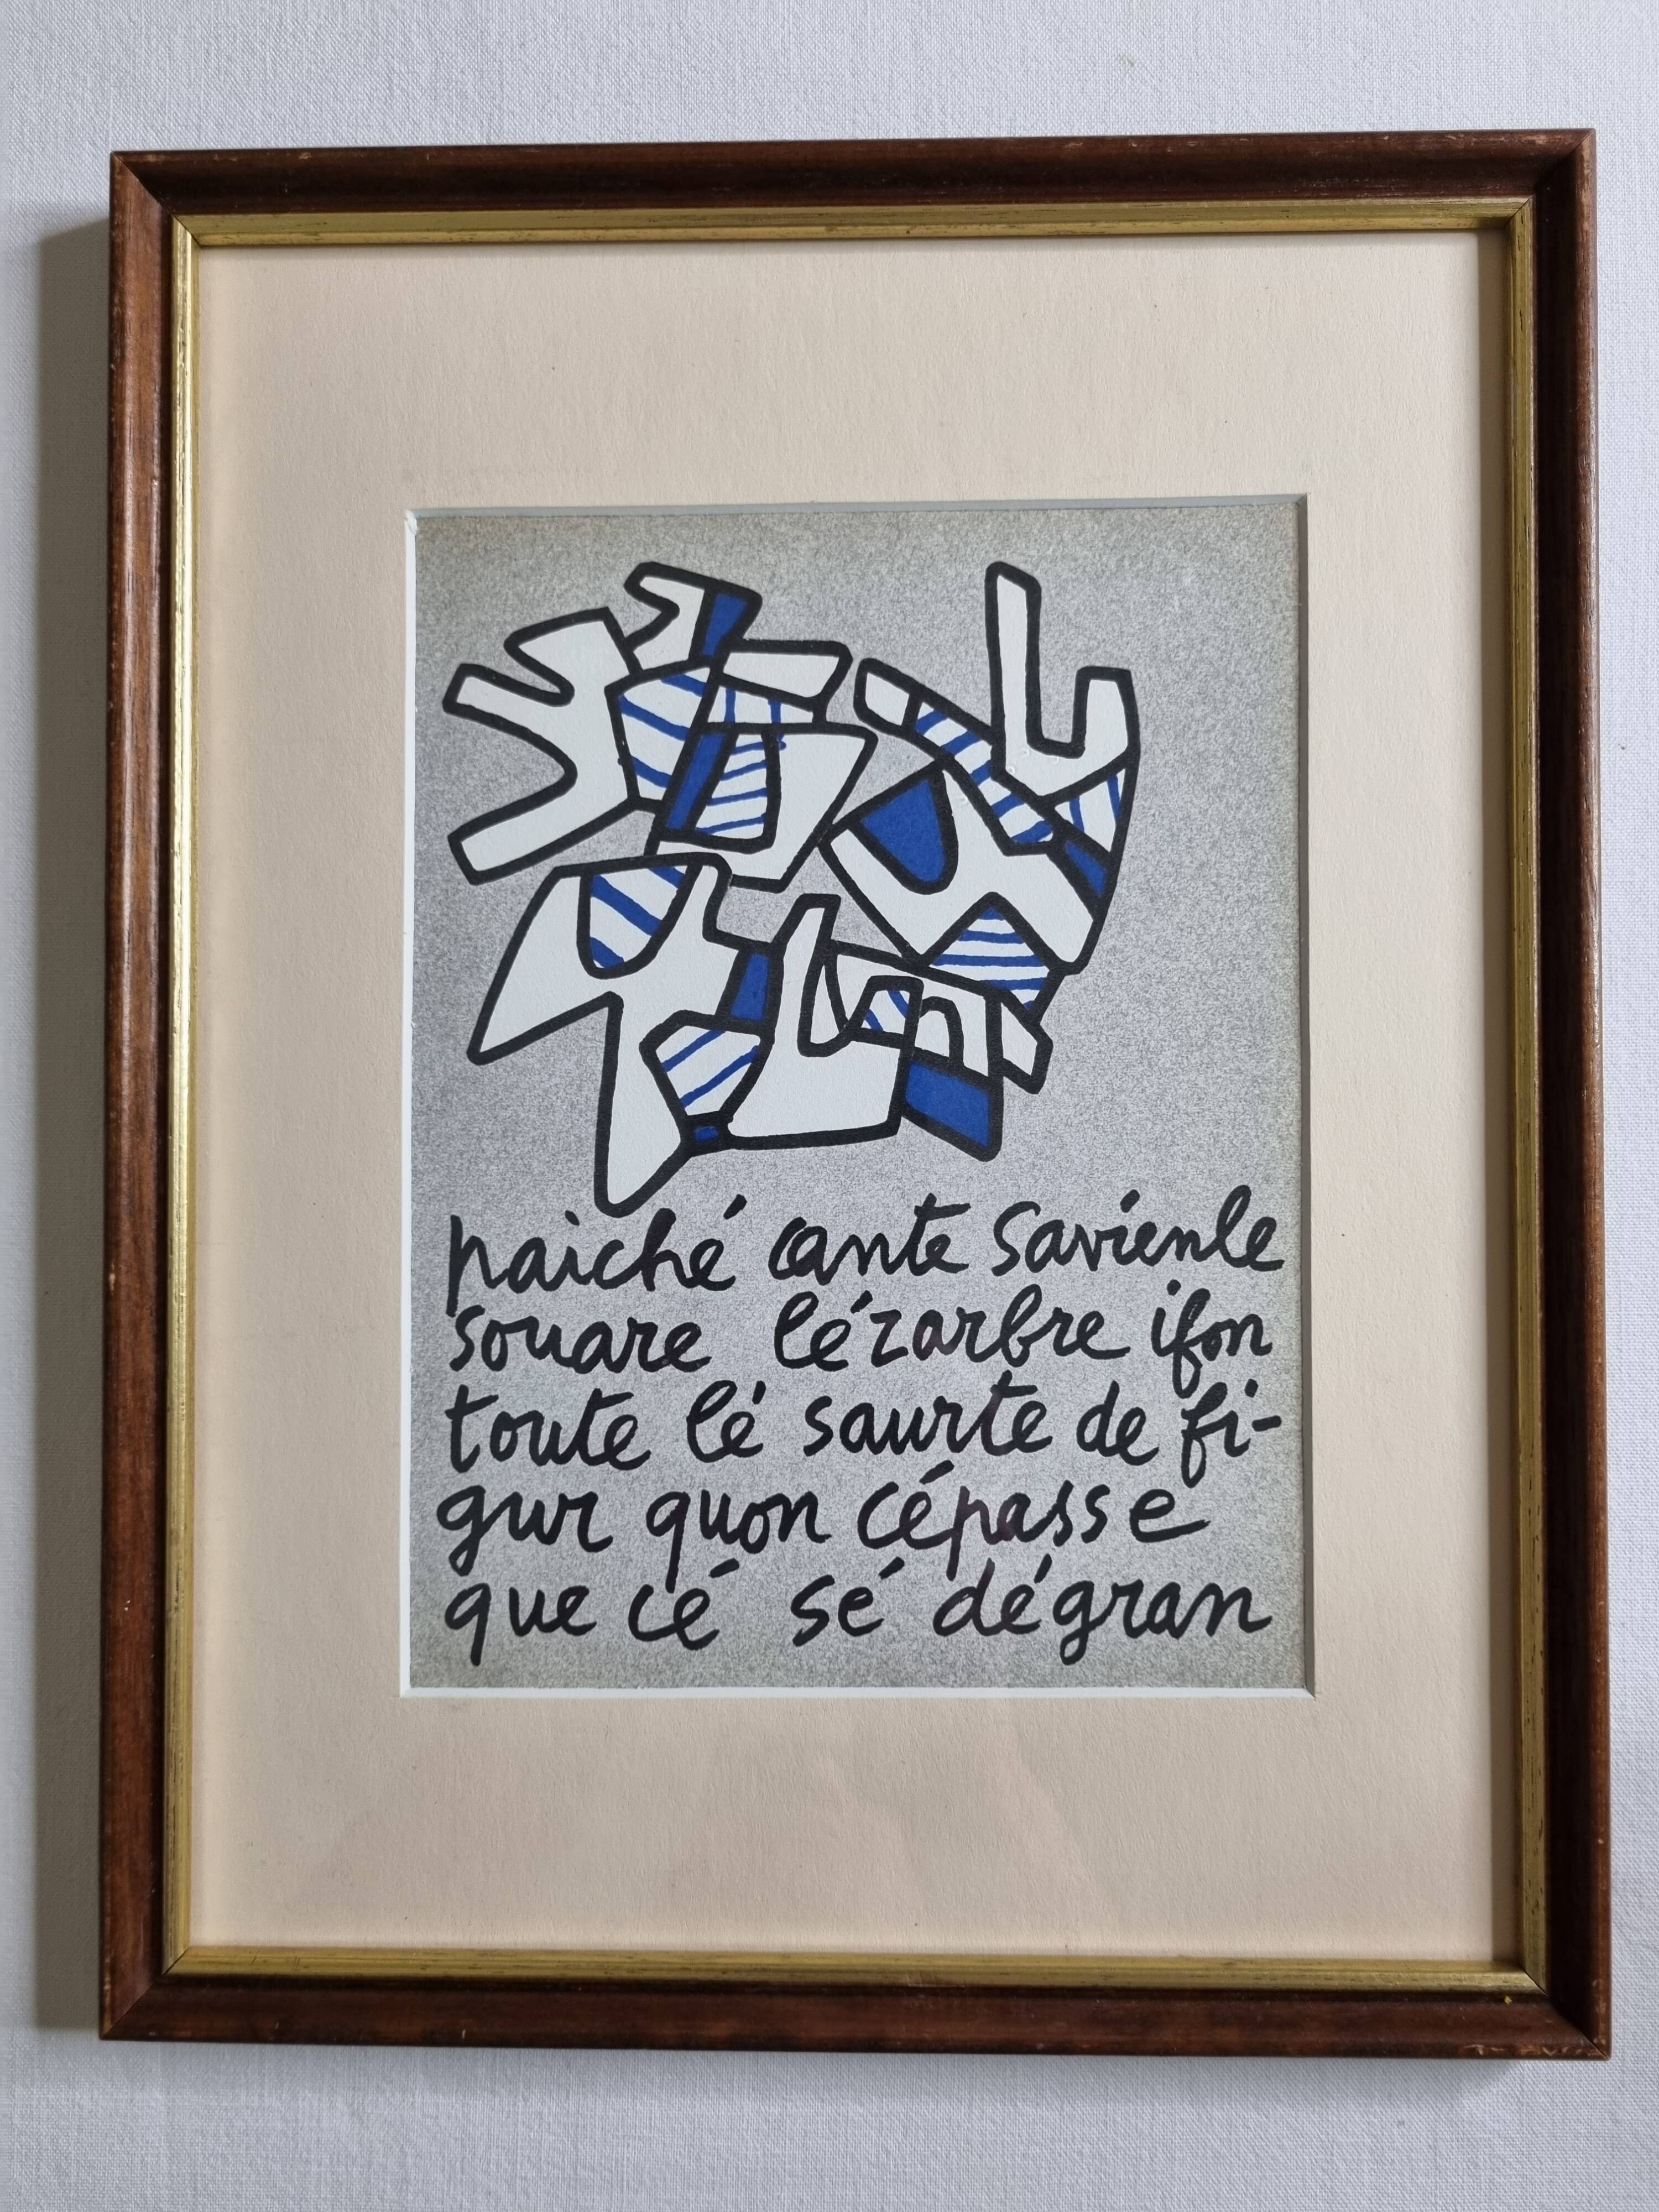 paiché cante savienle
souare lézarbre ifon
toute lé saurte de fi-
gur quon cépasse
que cé sé dégran